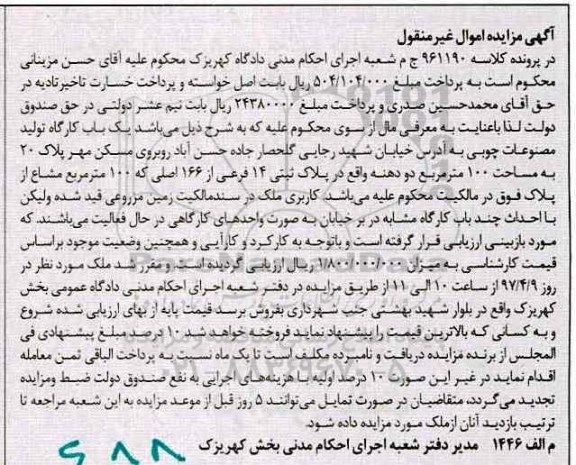 آگهی مزایده اموال غیرمنقول
در پرونده کلاسه ۹۶۱۱۹۰ ج م شعبه اجرای احکام مدنی دادگاه کهریزک محکوم علیه آقای حسن مزینانی
محکوم است به پرداخت مبلغ ۵۰۴/۱۰۴/۰۰۰ ریال بابت اصل خواسته و پرداخت خسارت تاخیرتادیه در
حق آقای محمدحسین صدری و پرداخت مبلغ ۲۴۳۸۰۰۰۰ ریال بابت نیم عشر دولتی در حق صندوق
دولت لذا باعنایت به معرفی مال از سوی محکوم علیه که به شرح ذیل می‌باشد یک باب کارگاه تولید
مصنوعات چوبی به آدرس خیابان شهید رجایی گلحصار جاده حسن آباد روبروی مسکن مهر پلاک ۲۰
به مساحت ۱۰۰ مترمربع دو دهنه واقع در پلاک ثبتی ۱۴ فرعی از ۱۶۶ اصلی که ۱۰۰ مترمربع مشاع از
پلاک فوق در مالکیت محکوم علیه می‌باشد. کاربری ملک در سندمالکیت زمین مزروعی قید شده ولیکن
با احداث چند باب کارگاه مشابه در بر خیابان به صورت واحدهای کارگاهی در حال فعالیت می‌باشند که
مورد بازبینی ارزیابی قرار گرفته است و باتوجه به کارکرد و کارآیی و همچنین وضعیت موجود براساس
قیمت کارشناسی به میزان ۱/۸۰۰/۰۰۰/۰۰۰ ریال ارزیابی گردیده است و مقرر شد ملک مورد نظر در
روز ۹۷/۴/۹ از ساعت ۱۰ الی ۱۱ از طریق مزایده در دفتر شعبه اجرای احکام مدنی دادگاه عمومی بخش
کهریزک واقع در بلوار شهید بهشتی جنب شهرداری بفروش برسد قیمت پایه از بهای ارزیابی شده شروع
و به کسانی که بالاترین قیمت را پیشنهاد نماید فروخته خواهد شد ۱۰ درصد مبلغ پیشنهادی فی
المجلس از برنده مزایده دریافت و نامبرده مکلف است تا یک ماه نسبت به پرداخت الباقی ثمن معامله
اقدام نماید در غیر این صورت ۱۰ درصد اولیه با هزینه‌های اجرایی به نفع صندوق دولت ضبط ومزایده
تجدید می‌گردد، متقاضیان در صورت تمایل می‌توانند ۵ روز قبل از موعد مزایده به این شعبه مراجعه تا
ترتیب بازدید آنان ازملک مورد مزایده داده شود.
م الف ۱۴۴۶ مدیر دفتر شعبه اجرای احکام مدنی بخش کهریزک
۶۸۸